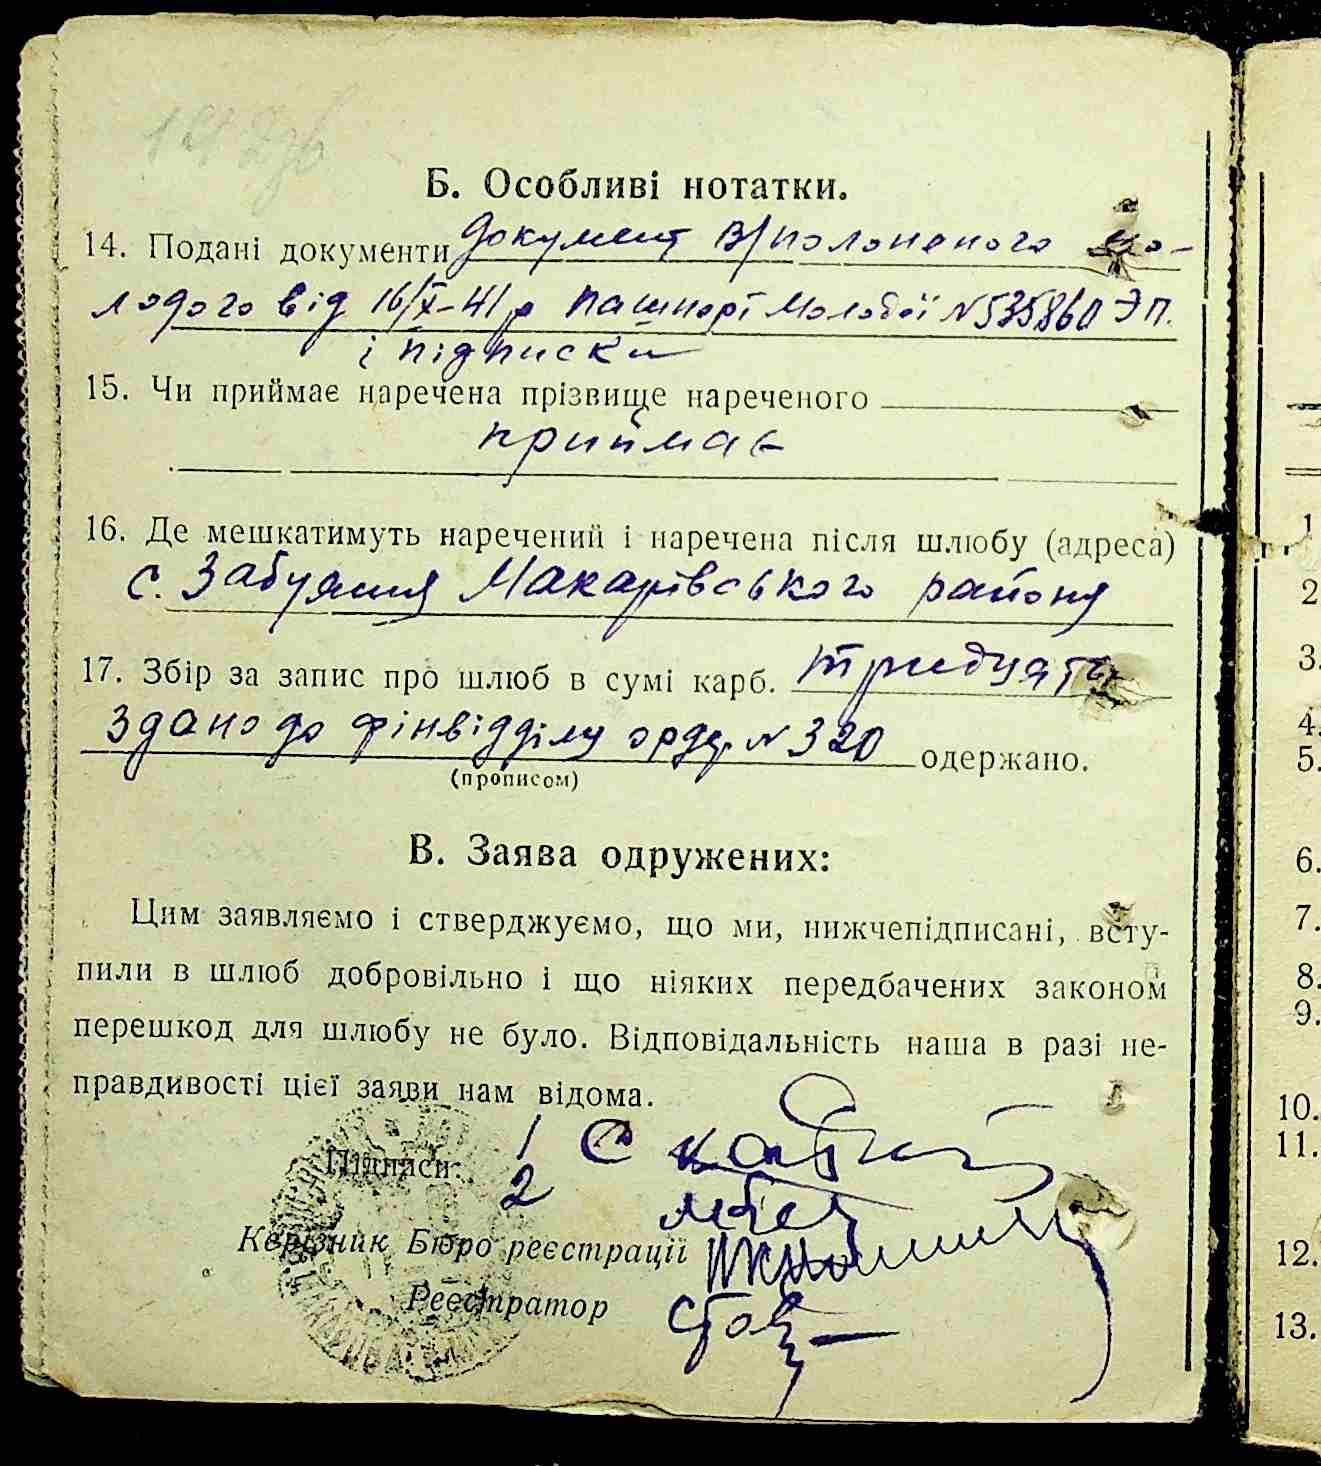 Б. Особливі нотатки.
14. Подані документи документ в/полоненого мо-
лодого від 16/X-41 р паспорт Молодої №535860 ЭП.
і підписки
15. Чи приймає наречена прізвище нареченого
приймає
16. Де мешкатимуть наречений і наречена після шлюбу (адреса)
с. Забуяння Макарівського району
17. Збір за запис про шлюб в сумі карб. тридцять
здано до фінвідділу орд. №320 одержано.
(прописом)
В. Заява одружених:
Цим заявляємо і стверджуємо, що ми, нижчепідписані, всту-
пили в шлюб добровільно і що ніяких передбачених законом
перешкод для шлюбу не було. Відповідальність наша в разі не-
правдивості цієї заяви нам відома.
Підписи: 1
2
Керівник Бюро реєстрації
Реєстратор
1
2
3.
4.
5.
6.
7.
8.
9.
10.
11.
12.
13.